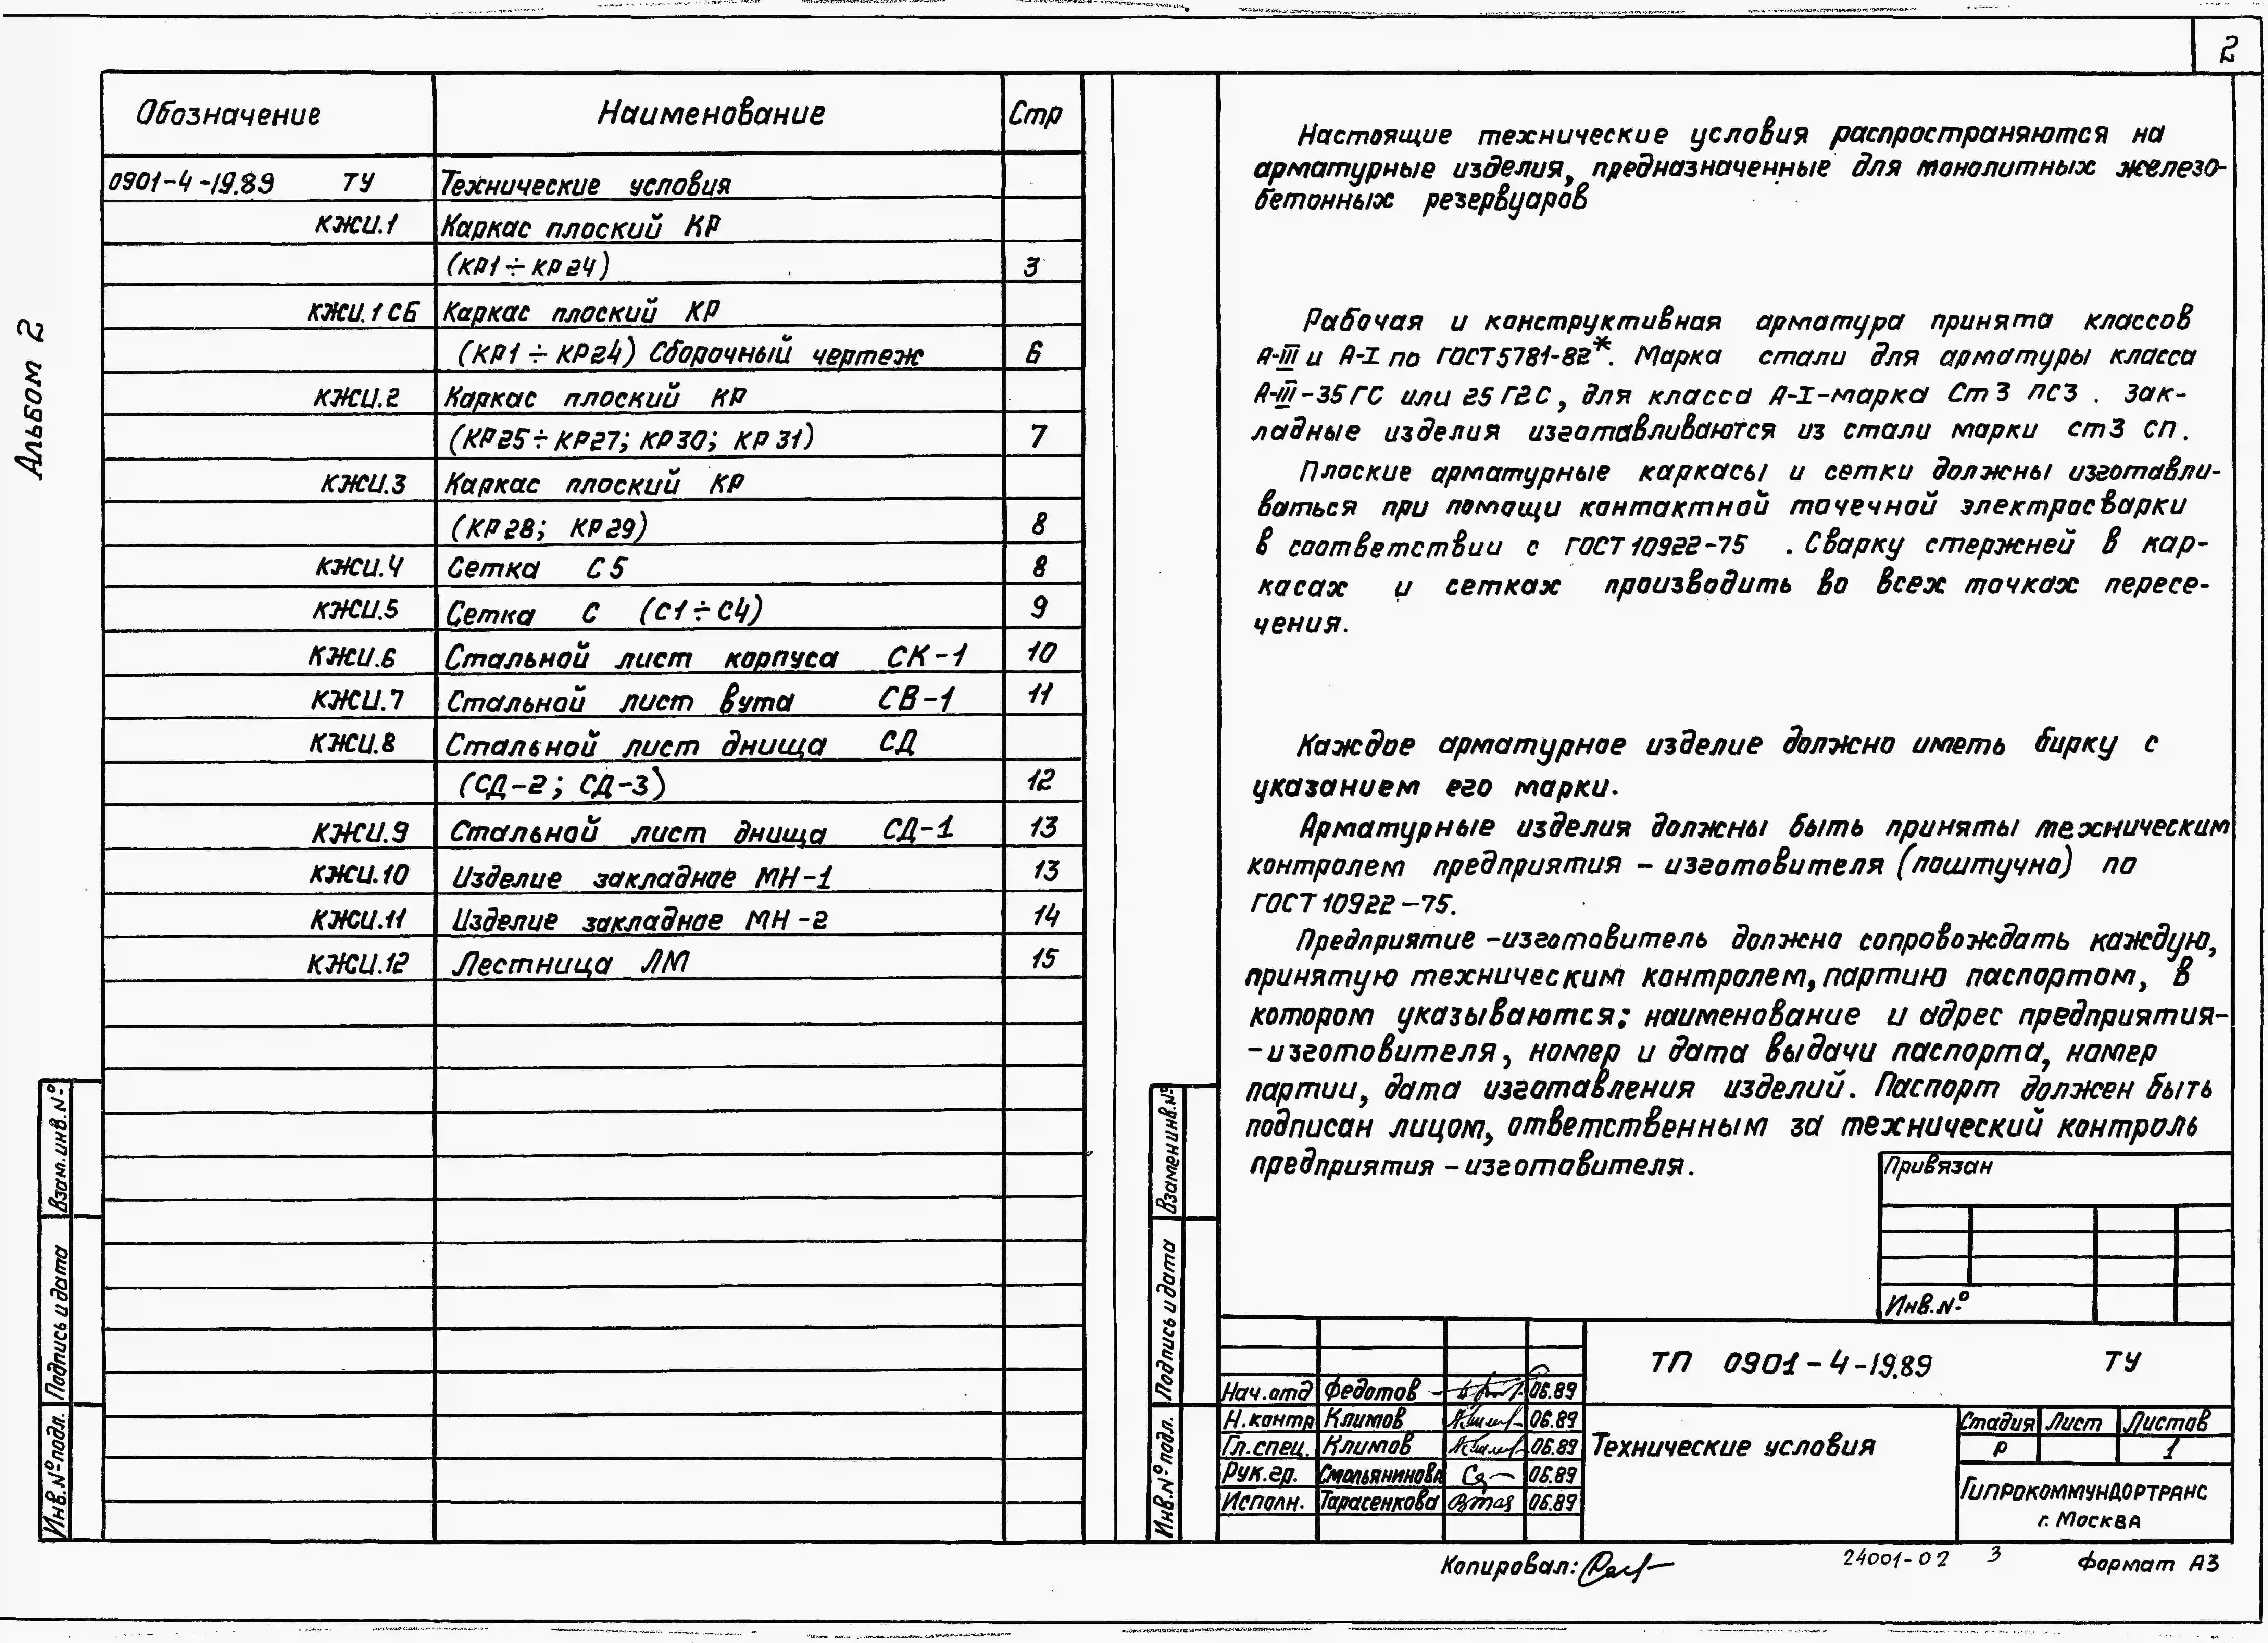 2
Альбом 2
Обозначение Наименование Стр
0901-4-19.89 ТУ Технические условия
КЖИ.1 Каркас плоский КР
(КР1÷КР24) 3
КЖИ.1 СБ Каркас плоский КР
(КР1÷КР24) Сборочный чертеж 6
КЖИ.2 Каркас плоский КР
(КР25÷КР27; КР30; КР31) 7
КЖИ.3 Каркас плоский КР
(КР28; КР29) 8
КЖИ.4 Сетка С5 8
КЖИ.5 Сетка С (С1÷С4) 9
КЖИ.6 Стальной лист корпуса СК-1 10
КЖИ.7 Стальной лист вута СВ-1 11
КЖИ.8 Стальной лист днища СД
(СД-2; СД-3) 12
КЖИ.9 Стальной лист днища СД-1 13
КЖИ.10 Изделие закладное МН-1 13
КЖИ.11 Изделие закладное МН-2 14
КЖИ.12 Лестница ЛМ 15
Взам.инв.№
Подпись и дата
Инв.№ подл.
Настоящие технические условия распространяются на
арматурные изделия, предназначенные для монолитных железо-
бетонных резервуаров
Рабочая и конструктивная арматура принята классов
А-III и А-I по ГОСТ 5781-82*. Марка стали для арматуры класса
А-III-35ГС или 25Г2С, для класса А-I-марка Ст3 пс3. Зак-
ладные изделия изготавливаются из стали марки ст3 сп.
Плоские арматурные каркасы и сетки должны изготавли-
ваться при помощи контактной точечной электросварки
в соответствии с ГОСТ 10922-75 . Сварку стержней в кар-
касах и сетках производить во всех точках пересе-
чения.
Каждое арматурное изделие должно иметь бирку с
указанием его марки.
Арматурные изделия должны быть приняты техническим
контролем предприятия - изготовителя (поштучно) по
ГОСТ 10922-75.
Предприятие-изготовитель должно сопровождать каждую,
принятую техническим контролем, партию паспортом, в
котором указываются; наименование и адрес предприятия-
-изготовителя, номер и дата выдачи паспорта, номер
партии, дата изготавления изделий. Паспорт должен быть
подписан лицом, ответственным за технический контроль
предприятия-изготовителя.
Взамен инв.№
Подпись и дата
Инв.№ подл.
Привязан
Инв.№
ТП 0901-4-19.89 ТУ
Нач.отд Федотов 06.89
Н.контр Климов 06.89
Гл.спец. Климов 06.89
Рук.гр. Смольянинова 06.89
Исполн. Тарасенкова 06.89
Технические условия
Стадия Лист Листов
Р 1
Гипрокоммундортранс
г. Москва
Копировал:
24001-02 3
Формат А3